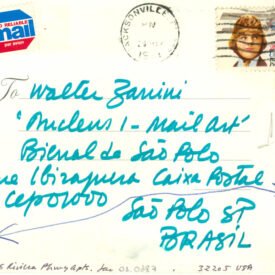 RELIABLE
mail
JACKSONVILLE
To Walter Zanini
'Nucleus 1 - Mail Art'
Bienal de São Polo
Ibirapuera Caixa Postal
CEP01000
São Polo SP
BRASIL
Riviera Pkwy Apts. Jax
32205 USA